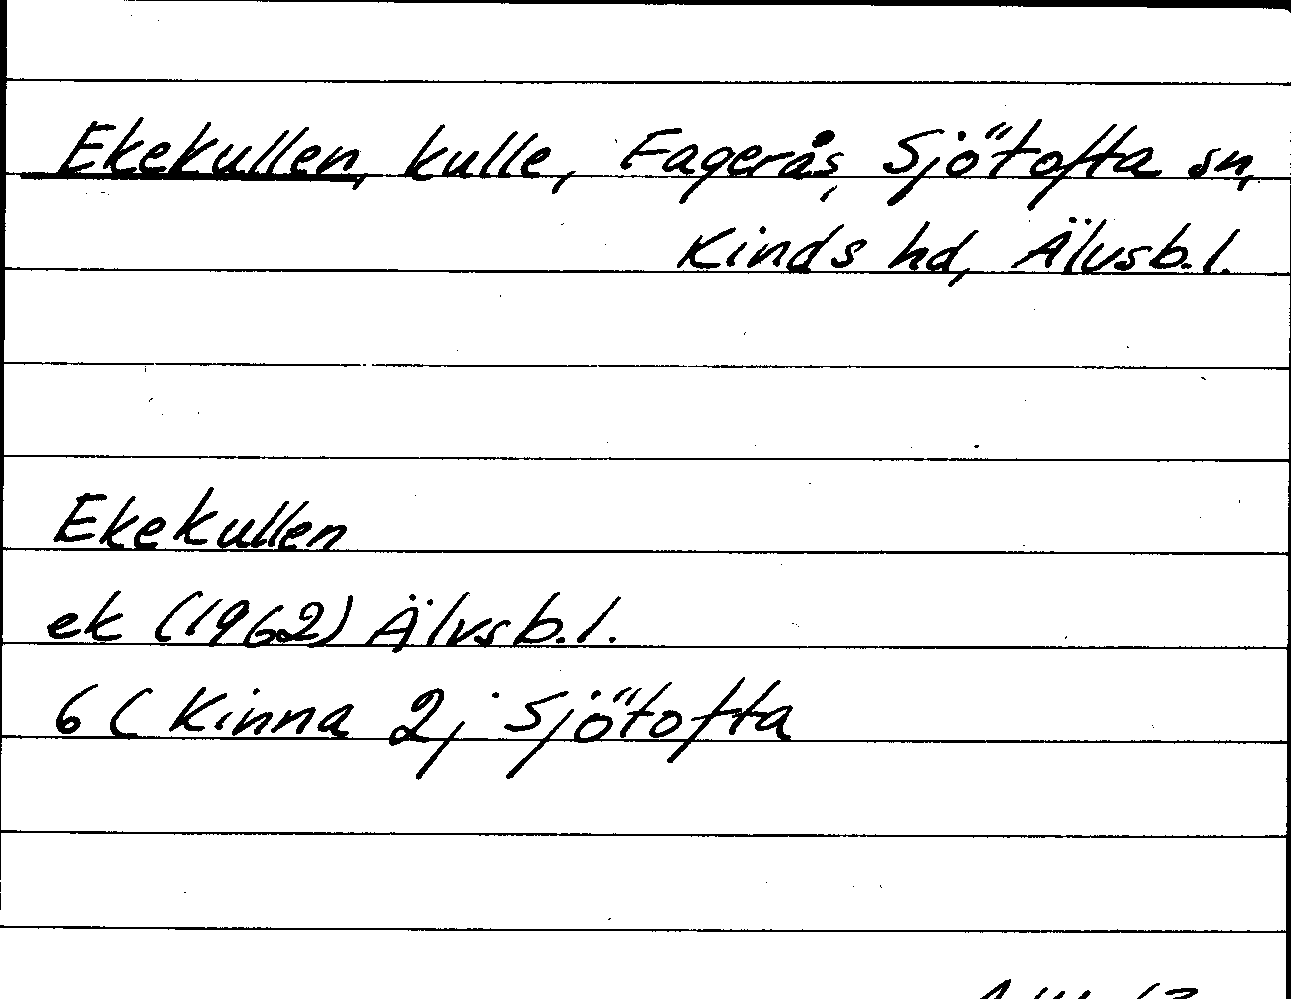 Ekekullen, kulle, Fagerås, Sjötofta sn,
Kinds hd, Älvsb.l.
Ekekullen
ek (1962) Älvsb.l.
6 C Kinna 2j Sjötofta